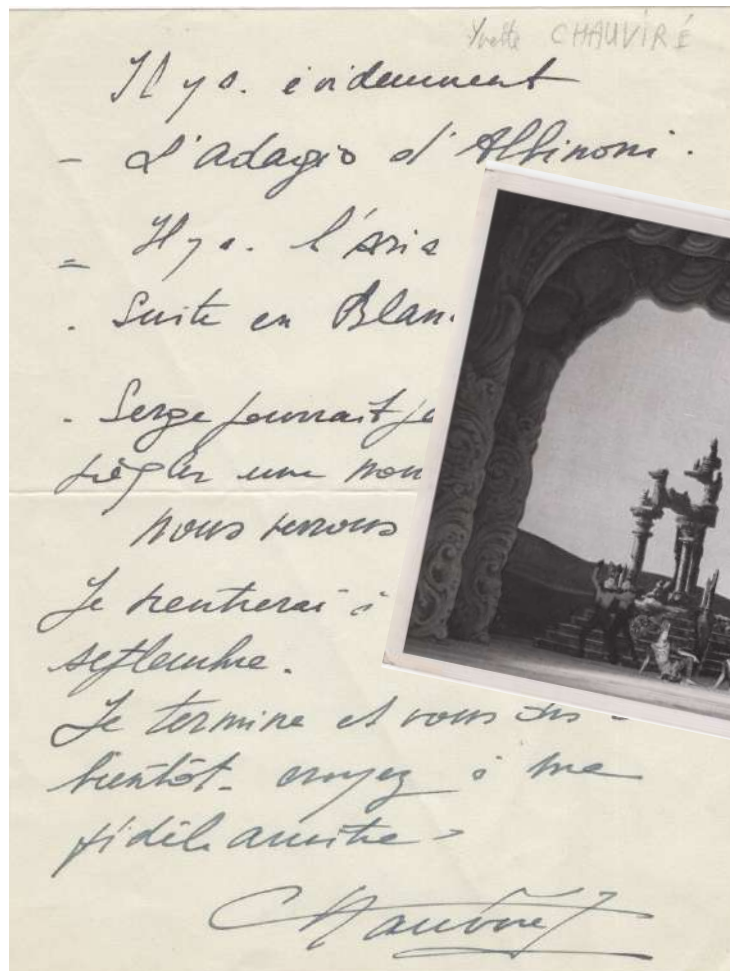 Yvette CHAUVIRÉ
Il y a. évidemment
- L'adagio d'Albinoni.
= Il y a. l'Aria
. Suite en Blan
. Serge pourrait
régler une nou
nous verrons
Je rentrerai à
septembre.
Je termine et vous dis à
bientôt. croyez à ma
fidèle amitié
Chauviré